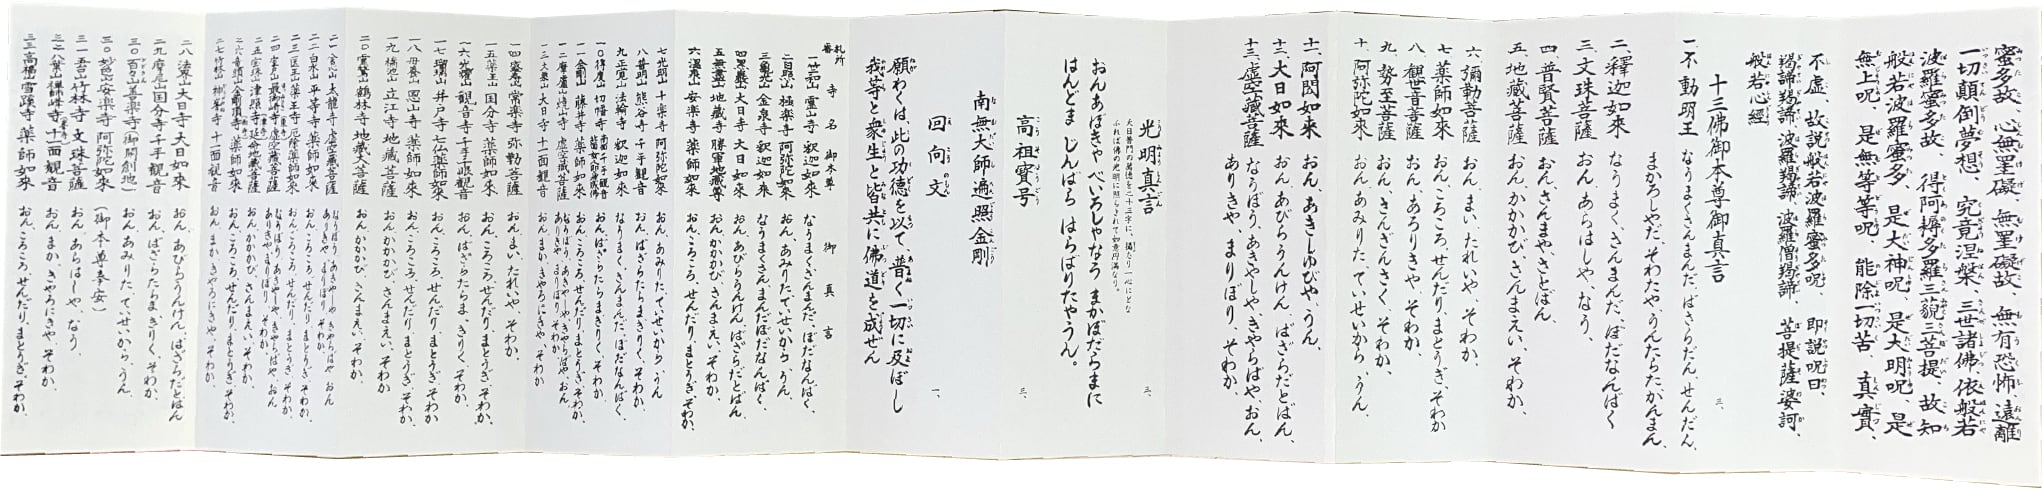 蜜多故、心無罣礙、無罣礙故、無有恐怖、遠離
一切顛倒夢想、究竟涅槃、三世諸佛、依般若
波羅蜜多故、得阿耨多羅三藐三菩提、故知
般若波羅蜜多、是大神呪、是大明呪、是
無上呪、是無等等呪、能除一切苦、真實
不虚、故説般若波羅蜜多呪、即説呪曰、
羯諦羯諦、波羅羯諦、波羅僧羯諦、菩提薩婆訶、
般若心經
十三佛御本尊御真言 三、
一、不動明王 なうまくさんまんだ、ばさらだん、せんだん、
まかろしやだ、そわたや、うんたらた、かんまん、
二、釋迦如来 なうまく、さんまんだ、ぼだなんばく
三、文珠菩薩 おん、あらはしや、なう、
四、普賢菩薩 おん、さんまやさとばん、
五、地蔵菩薩 おん、かかかび、さんまえい、そわか、
六、彌勒菩薩 おん、まい、たれいや、そわか、
七、薬師如来 おん、ころころ、せんだり、まとうぎ、そわか
八、観世音菩薩 おん、あろりきや、そわか、
九、勢至菩薩 おん、さんざんさく、そわか、
十、阿弥陀如来 おん、あみりた、ていせいから、うん、
十一、阿閦如来 おん、あきしゆびや、うん、
十二、大日如来 おん、あびらうんけん、ばざらだとばん、
十三、虚空蔵菩薩 なうぼう、あきやしや、きやらばや、おん、
ありきや、まりぼり、そわか、
光明真言 三、
おんあぼきや べいろしやなう まかぼだらまに
はんどま じんばら はらばりたやうん。
高祖寶号 三、
南無大師遍照金剛
回向文 一、
願わくは、此の功徳を以て、普く一切に及ぼし
我等と衆生と皆共に佛道を成ぜん
札所番 寺名 御本尊 御真言
一、竺和山 霊山寺 釈迦如来 なうまくさんまんだ、ぼだなんばく、
二、日照山 極楽寺 阿弥陀如来 おん、あみりた、ていせ、から、うん、
三、亀光山 金泉寺 釈迦如来 なうまくさんまんだ、ぼだなんばく、
四、黒巌山 大日寺 大日如来 おん、あびらうんけん、ばざらだとばん、
五、無盡山 地蔵寺 勝軍地蔵尊 おん、かかかび、さんまえい、そわか
六、温泉山 安楽寺 薬師如来 おん、ころころ、せんだり、まとうぎ、そわか、
七、光明山 十楽寺 阿弥陀如来 おん、あみりた、ていせ、から、うん
八、普明山 熊谷寺 千手観音 おん、ばざらたらま、きりく、そわか
九、正覚山 法輪寺 釈迦如来 なうまくさんまんだ、ぼだなんばく、
一〇、得度山 切幡寺 おん、ばざらたらま、きりく、そわか
一一、金剛山 藤井寺 薬師如来 おん、ころころ、せんだり、まとうぎ、そわか
一二、摩廬山 焼山寺 虚空蔵菩薩 なうぼう、あきやしや、きやらばや、おん、
ありきや、まりぼり、そわか
一三、大栗山 大日寺 十一面観音 おん、まか、きやろにきや、そわか
一四、盛寿山 常楽寺 弥勒菩薩 おん、まい、たれいや、そわか、
一五、薬王山 国分寺 薬師如来 おん、ころころ、せんだり、まとうぎ、そわか、
一六、光耀山 観音寺 千手眼観音 おん、ばざらたらま、きりく、そわか
一七、瑠璃山 井戸寺 七仏薬師如来 おん、ころころ、せんだり、まとうぎ、そわか
一八、母養山 恩山寺 薬師如来 おん、ころころ、せんだり、まとうぎ、そわか
一九、橋池山 立江寺 地蔵菩薩 おん、かかかび、さんまえい、そわか、
二〇、霊鷲山 鶴林寺 地蔵大菩薩 おん、かかかび、さんまえい、そわか、
二一、舎心山 太龍寺 虚空蔵菩薩 なうぼう、あきやしや、きやらばや、おん
ありきや、まりぼり、そわか、
二二、白水山 平等寺 薬師如来 おん、ころころ、せんだり、まとうぎ、そわか、
二三、医王山 薬王寺 厄除薬師如来 おん、ころころ、せんだり、まとうぎ、そわか、
二四、室戸山 最御崎寺 虚空蔵菩薩 なうぼう、あきやしや、きやらばや、おん
ありきや、まりぼり、そわか、
二五、宝珠山 津照寺 延命地蔵菩薩 おん、かかかび、さんまえい、そわか、
二六、龍頭山 金剛頂寺 薬師如来 おん、ころころ、せんだり、まとうぎ、そわか、
二七、竹林山 神峯寺 十一面観音 おん、まか、きやろにきや、そわか、
二八、法界山 大日寺 大日如来 おん、あびらうんけん、ばざらだとばん
二九、摩尼山 国分寺 千手観音 おん、ばざらたらま、きりく、そわか、
三〇、百々山 善楽寺（御開創地） おん、あみりた、ていせ、から、うん
三〇、妙色山 安楽寺 阿弥陀如来 （御本尊奉安）
三一、五台山 竹林寺 文珠菩薩 おん、あらはしや、なう、
三二、八葉山 禅師峰寺 十一面観音 おん、まか、きやろにきや、そわか、
三三、高福山 雪蹊寺 薬師如来 おん、ころころ、せんだり、まとうぎ、そわか、